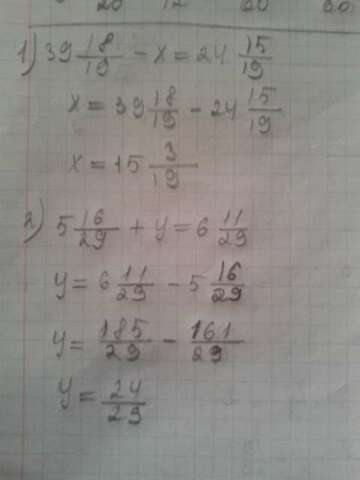 1) 39 18/19 - x = 24 15/19
x = 39 18/19 - 24 15/19
x = 15 3/19
2) 5 16/29 + y = 6 11/29
y = 6 11/29 - 5 16/29
y = 185/29 - 161/29
y = 24/29